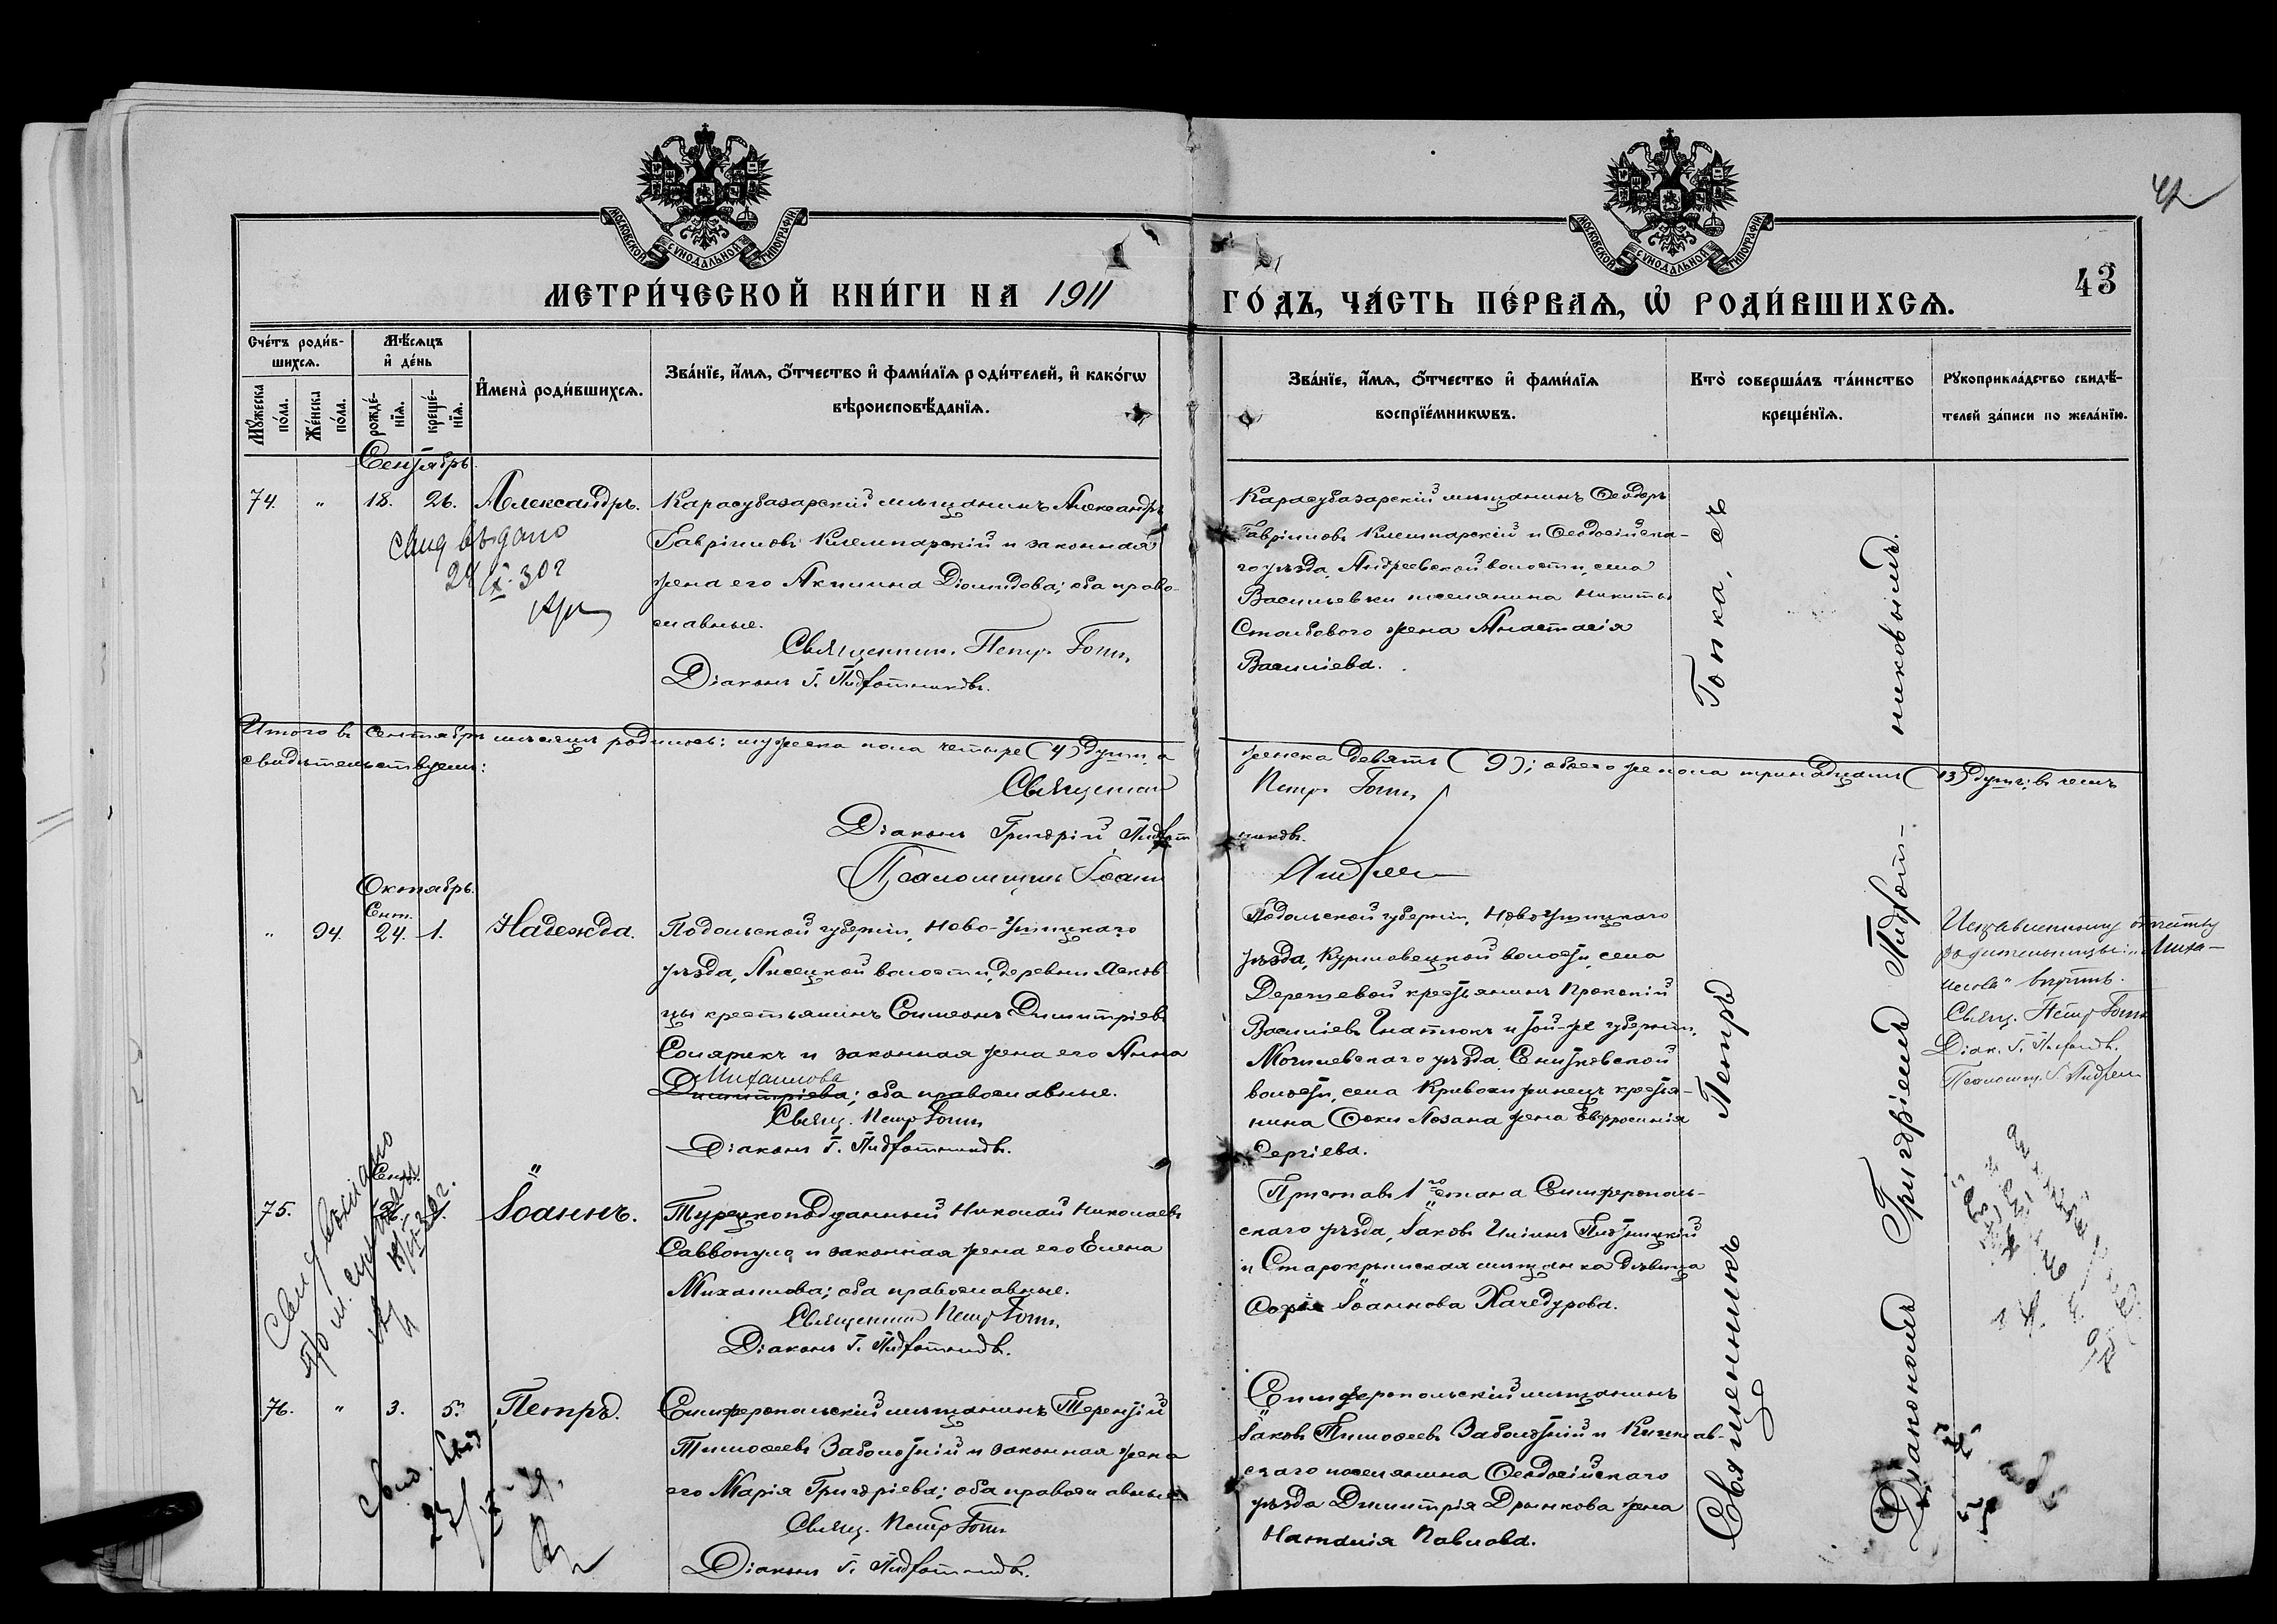 42
МОСКОВСКОЙ СѴНОДАЛЬНОЙ ТИПОГРАФІИ
МОСКОВСКОЙ СѴНОДАЛЬНОЙ ТИПОГРАФІИ
МЕТРИ́ЧЕСКОЙ КНИ́ГИ НА 1911
ГО́ДЪ, ЧА́СТЬ ПЕ́РВАѦ, Ѡ҆ РОДИ́ВШИХСѦ.
43
Сче́тъ роди́в-
шихсѧ.
Мꙋ́жеска по́ла.
Же́нска по́ла.
Мѣ́сѧцъ
и҆ де́нь
рожде́-
нїѧ.
креще́-
нїѧ.
И҆мена̀ роди́вшихсѧ.
Зва́нїе, и҆́мѧ, ѻ҆́тчество и҆ фами́лїѧ роди́телей, и҆ како́гѡ
вѣроисповѣ́данїѧ.
Зва́нїе, и҆́мѧ, ѻ҆́тчество и҆ фами́лїѧ
воспрїе́мникѡвъ.
Кто̀ соверша́лъ та́инство
креще́нїѧ.
Рꙋкоприкла́дство свидѣ́-
телей за́писи по жела́нїю.
Сентябрь.
74. " 18. 26. Александръ.
Карасубазарскій мѣщанинъ Александръ
Гавріиловъ Клемпарскій и законная
жена его Акилина Діомидова; оба право-
славные.
Священник Петр Гопка
Діаконъ Г. Пидготниковъ.
Свид выдано
24 IX-30 г
Карасубазарскій мѣщанинъ Ѳеодоръ
Гавріиловъ Клемпарскій и Ѳеодосійска-
го уѣзда, Андреевской волости, села
Васильевки поселянина Никиты
Столбового жена Анастасія
Василіева.
Итого въ сентябрѣ мѣсяцѣ родилось: мужеска пола четыре (4) душ, а
женска девять (9); обоего же пола тринадцать (13) душъ; въ чемъ
свидѣтельствуемъ:
Священник Петр Гопка
Діаконъ Григорій Пидготниковъ.
Псаломщикъ Іоанн Андреев
Октябрь.
Сент.
" 94. 24. 1. Надежда.
Подольской губерніи, Ново-Ушицкаго
уѣзда, волости, деревни Ясков-
цы крестьянинъ Симеонъ Димитріевъ
Солярикъ и законная жена его Анна
Михаилова
Димитріева; оба православные.
Свящ. Петр Гопка
Діаконъ Г. Пидготниковъ.
Подольской губерніи, Новоушицкаго
уѣзда, Куриловецкой волости, села
Дерешевой крестьянинъ Прокопій
Василіевъ Игнатюкъ и той-же губерніи,
Могилевскаго уѣзда, Снитковской
волости, села крестья-
нина Лозана жена Евфросинія
Сергіева.
Исправленному отчеству
родительницы: „Миха-
илова“ вѣрить.
Свящ. Петр Гопка
Діак. Г. Пидготниковъ.
Псаломщ. І. Андреев
Сент.
75. Іоаннъ.
Турецкоподданный Николай Николаевъ
Саввопуло и законная жена его Елена
Михаилова; оба православные.
Священник Петр Гопка
Діаконъ Г. Пидготниковъ.
Приставъ 1го стана Симферополь-
скаго уѣзда, Іаковъ Иліинъ
и Старокрымская мѣщанка дѣвица
Софія Іоаннова Хачедурова.
76. " 3. 5. Петръ.
Симферопольскій мѣщанинъ Терентій
Тимоѳеевъ Заболотній и законная жена
его Марія Григоріева; оба православные.
Свящ. Петр Гопка
Діаконъ Г. Пидготниковъ.
Симферопольскій мѣщанинъ
Іаковъ Тимоѳеевъ Заболотній и Кишлав-
скаго поселянина Ѳеодосійскаго
уѣзда Димитрія Дрынкова жена
Наталія Павлова.
Священникъ Петръ Гопка, съ
Діакономъ Григоріемъ Пидгот-
никовымъ.